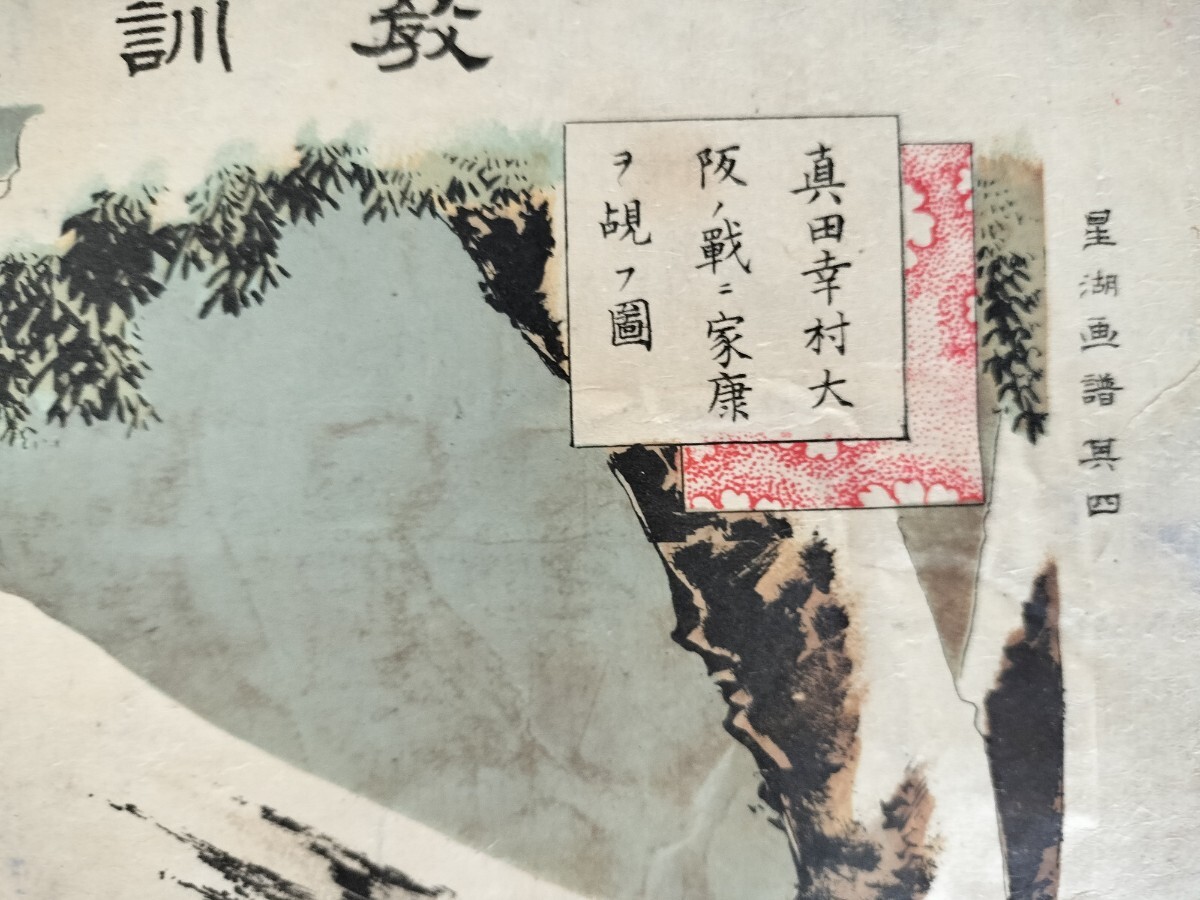 教訓
真田幸村大
阪ノ戰ニ家康
ヲ覘フ圖
星湖画譜其四